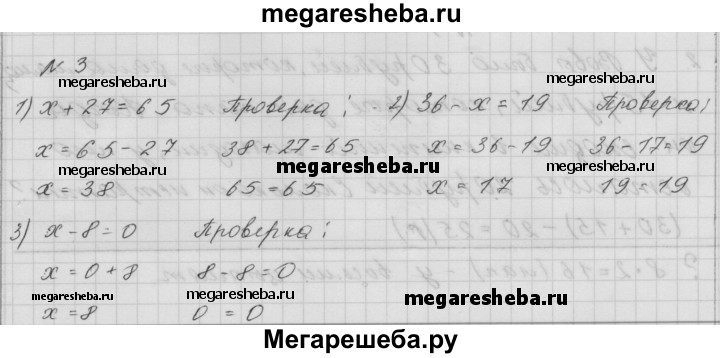 megaresheba.ru
N 3
megaresheba.ru
megaresheba.ru
1) x + 27 = 65 Проверка: 2) 36 - x = 19 Проверка:
x = 65 - 27 38 + 27 = 65 x = 36 - 19 36 - 17 = 19
megaresheba.ru
x = 38 65 = 65 x = 17 19 = 19
megaresheba.ru
megaresheba.ru
3) x - 8 = 0 Проверка:
(30 + 15) - 20 = 25 (р)
x = 0 + 8 8 - 8 = 0
8 · 2 = 16
megaresheba.ru
megaresheba.ru
megaresheba.ru
x = 8 0 = 0
Мегарешеба.ру